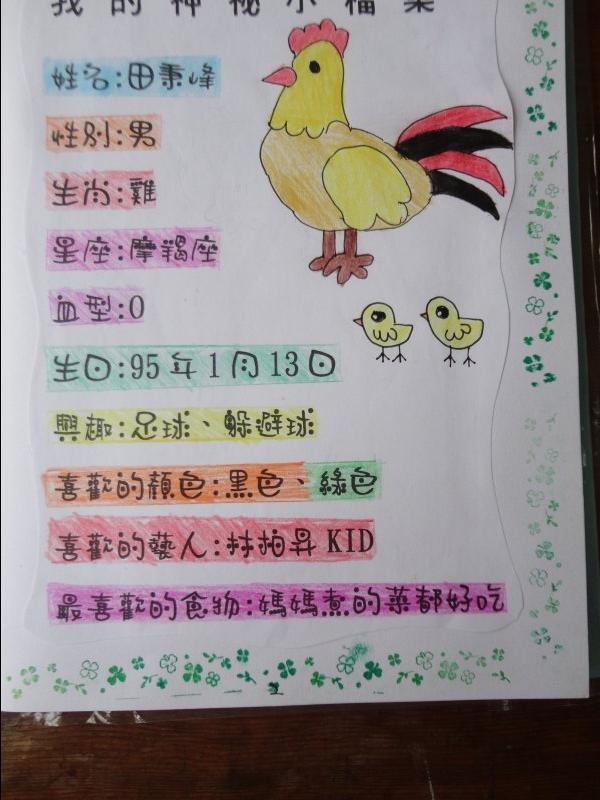 我的神秘小檔案
姓名:田秉峰
性別:男
生肖:雞
星座:摩羯座
血型:O
生日:95年1月13日
興趣:足球、躲避球
喜歡的顏色:黑色、綠色
喜歡的藝人:林柏昇KID
最喜歡的食物:媽媽煮的菜都好吃